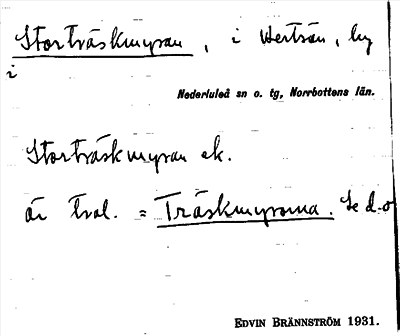 Storträskmyran, i Hertsön, by
i
Nederluleå sn o. tg, Norrbottens län.
Storträskmyran ek.
är tval. = Träskmyrorna. Se d.o
EDVIN BRÄNNSTRÖM 1931.